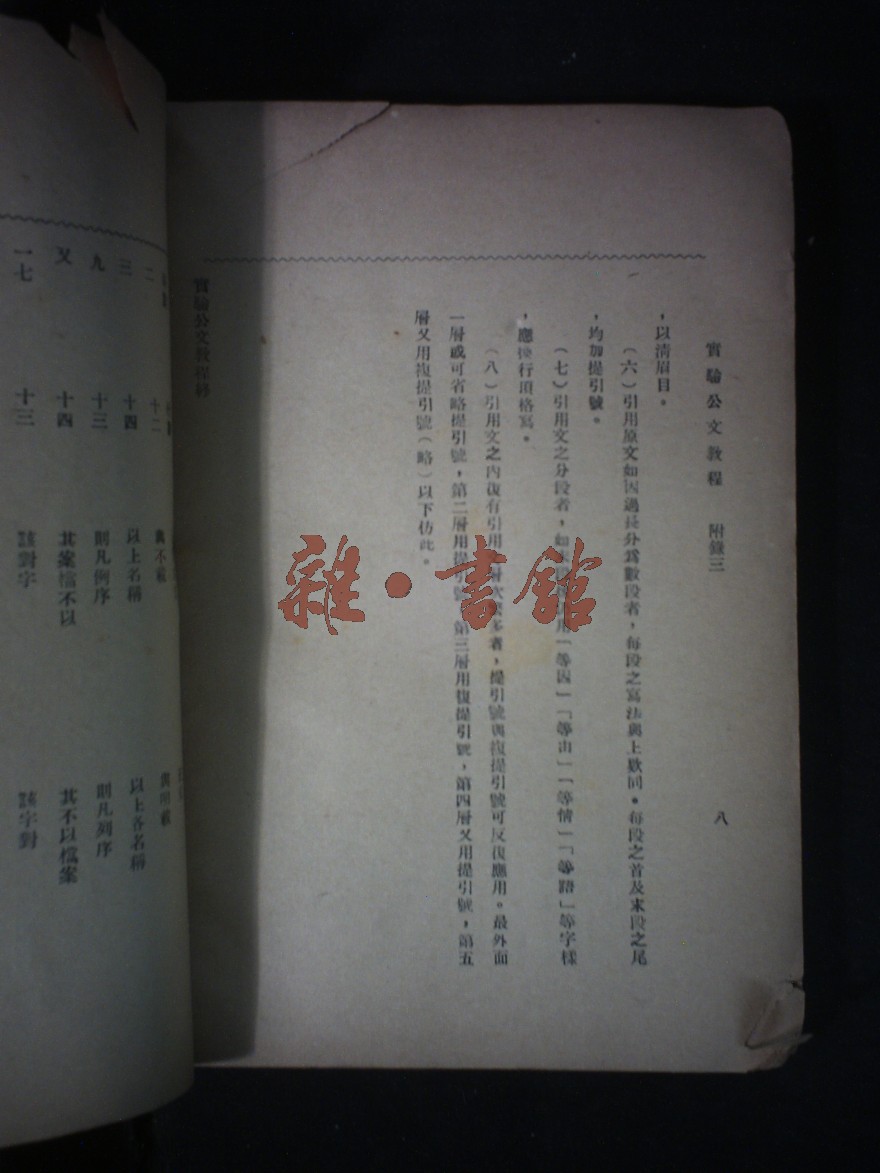 實驗公文教程 附錄三 八
，以淸眉目。
（六）引用原文如因過長分爲數段者，每段之寫法與上欵同。每段之首及末段之尾
，均加提引號。
（七）引用文之分段者，如末段後用「等因」「等由」「等情」「等語」等字樣
，應換行頂格寫。
（八）引用文之內復有引用者，提引號與復提引號可反復應用。最外面
一層或可省略提引號，第二層用提引號，第三層用復提引號，第四層又用提引號，第五
層又用複提引號（略）以下仿此。
實驗公文教程
二 十二
三 十四 以上名稱 以上各名稱
九 十三 則凡例序 則凡列序
又 十四 其案檔不以 其不以檔案
一七 十三 該對字 該字對
雜·書館